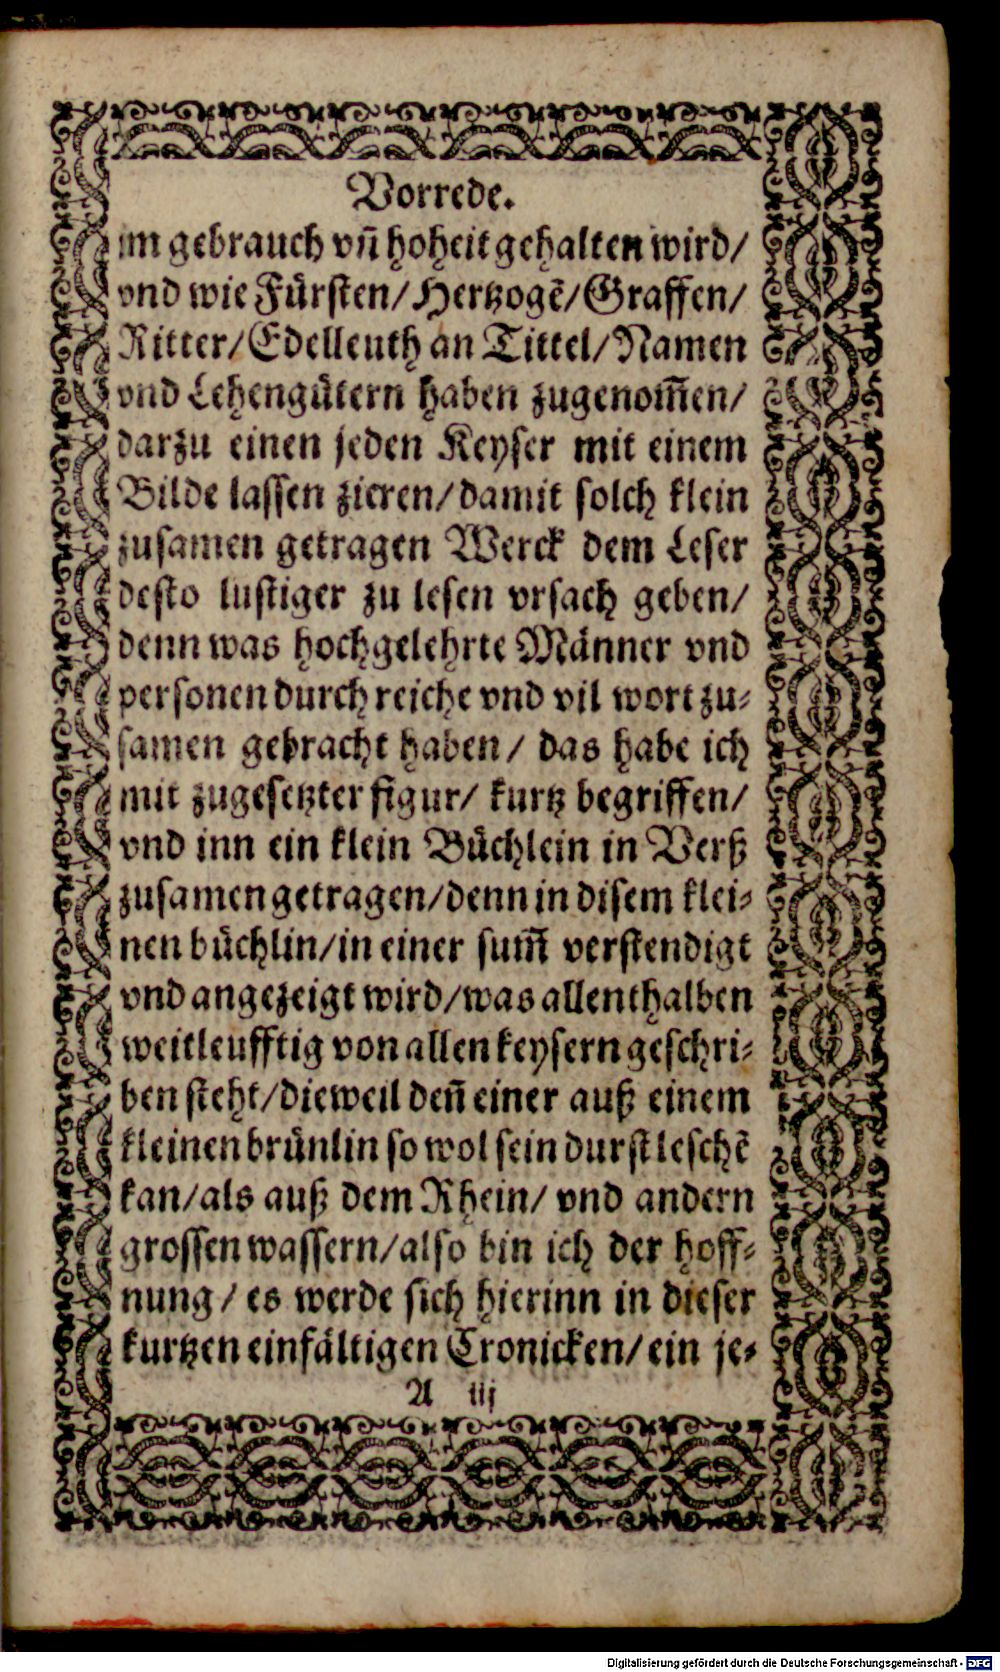 Vorrede.
im gebrauch vn̄ hoheit gehalten wird/
vnd wie Fürsten/ Hertzogē/ Graffen/
Ritter/ Edelleuth an Tittel/ Namen
vnd Lehengütern haben zugenom̄en/
darzu einen jeden Keyser mit einem
Bilde lassen zieren/ damit solch klein
zusamen getragen Werck dem Leser
desto lustiger zu lesen vrsach geben/
denn was hochgelehrte Männer vnd
personen durch reiche vnd vil wort zu-
samen gebracht haben/ das habe ich
mit zugesetzter figur/ kurtz begriffen/
vnd inn ein klein Büchlein in Verß
zusamen getragen/ denn in disem klei-
nen büchlin/ in einer sum̄ verstendigt
vnd angezeigt wird/ was allenthalben
weitleufftig von allen keysern geschri-
ben steht/ dieweil den̄ einer auß einem
kleinen brünlin so wol sein durst leschē
kan/ als auß dem Rhein/ vnd andern
grossen wassern/ also bin ich der hoff-
nung/ es werde sich hierinn in dieser
kurtzen einfältigen Cronicken/ ein je-
A iij
Digitalisierung gefördert durch die Deutsche Forschungsgemeinschaft - DFG